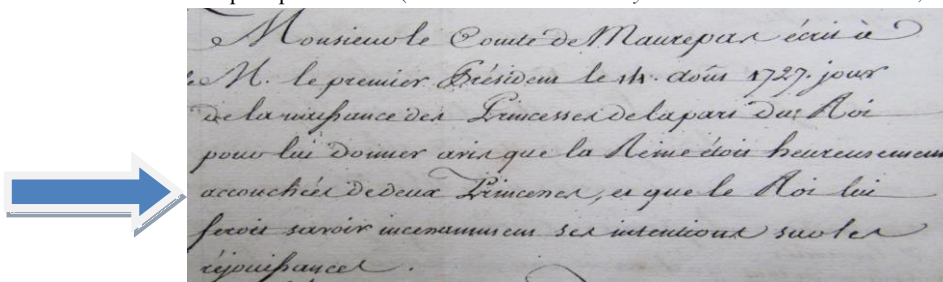 Monsieur le Comte de Maurepas écrit à
M. le premier Président le 14. aoûst 1727. jour
de la naissance des Princesses de la part du Roi
pour lui donner avis que la Reine étoit heureusement
accouchée de deux Princesses, et que le Roi lui
feroit savoir incessamment ses intentions sur les
réjouissances.